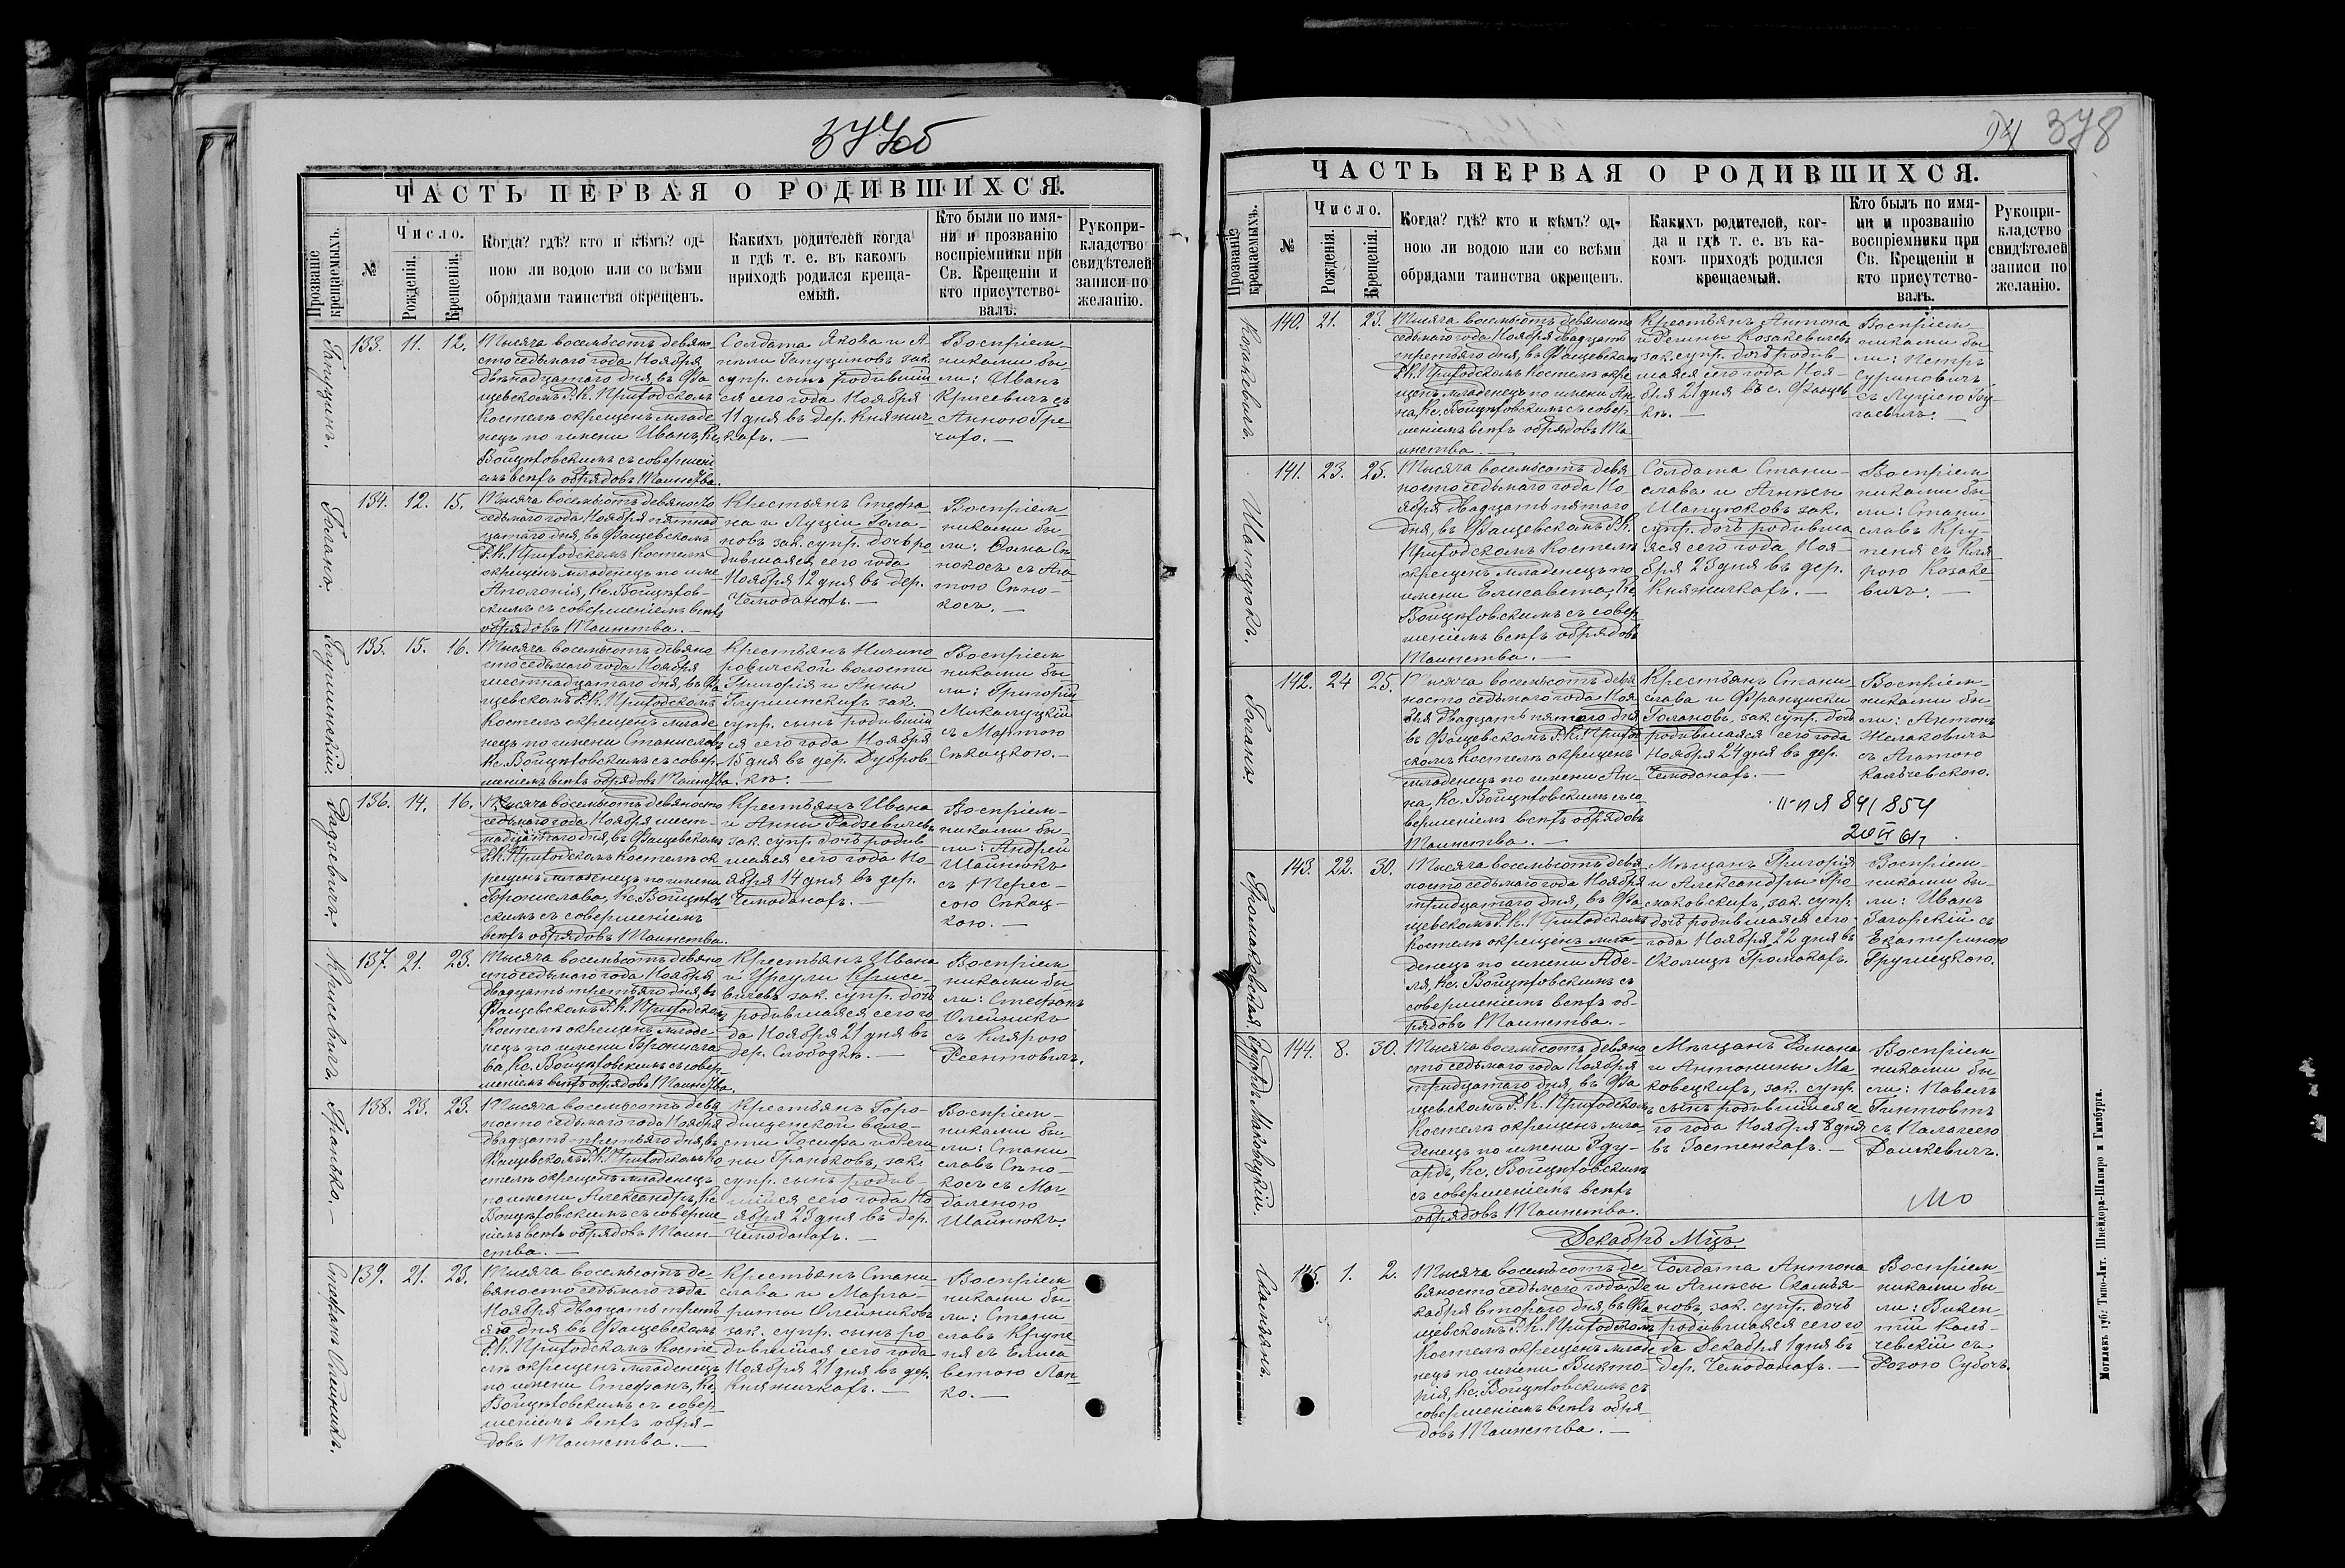 377об
ЧАСТЬ ПЕРВАЯ О РОДИВШИХСЯ.
Прозваніе крещаемыхъ.
№
Число.
Рожденія.
Крещенія.
Когда? гдѣ? кто и кѣмъ? од-
ною ли водою или со всѣми
обрядами таинства окрещенъ.
Какихъ родителей когда
и гдѣ т. е. въ какомъ
приходѣ родился креща-
емый.
Кто были по имя-
ни и прозванію
воспріемники при
Св. Крещеніи и
кто присутство-
валъ.
Рукопри-
кладство
свидѣтелей
записи по
желанію.
133. 11. 12.
Тысяча восемьсотъ девяно
сто седьмаго года Ноября
двѣнадцатаго дня, въ Фа
щевскомъ Р.К. Приходскомъ
Костелѣ окрещенъ младе
нецъ по имени Иванъ, Кс.
Войцѣховскимъ съ совершені
емъ всѣхъ обрядовъ Таинства.
Солдата Якова и А-
супр. сынъ родившій
ся сего года Ноября
11 дня въ дер. Княжич-
кахъ. —
Воспріем-
никами бы-
ли: Иванъ
Крисевичъ съ
Анною Гре-
чихо. —
Гоганъ.
134. 12. 15.
Тысяча восемьсотъ девяносто
седьмаго года Ноября пятнад
цатаго дня, въ Фащевскомъ
Р.К. Приходскомъ Костелѣ
окрещенъ младенецъ по име
Аполонія, Кс. Войцѣхов-
скимъ съ совершеніемъ всѣхъ
обрядовъ Таинства. —
Крестьянъ Стефа
на и Луціи Гога-
новъ зак. супр. дочь ро
дившаяся сего года
Ноября 12 дня въ дер.
Чемоданахъ. —
Воспріем-
никами бы-
ли: Фома Сѣ
нокосъ съ Ага-
тою Сѣно-
косъ. —
Глушинскій.
135. 15. 16.
Тысяча восемьсотъ девяно
сто седьмаго года Ноября
шестнадцатаго дня, въ Фа
щевскомъ Р.К. Приходскомъ
Костелѣ окрещенъ младе
нецъ по имени Станиславъ
Кс. Войцѣховскимъ съ совер-
шеніемъ всѣхъ обрядовъ Таинства.
Крестьянъ Ничипо
ровичской волости
Григорія и Анны
Глушинскихъ зак.
супр. сынъ родившій
ся сего года Ноября
15 дня въ дер. Дубров-
кѣ. —
Воспріем
никами бы-
ли: Григорій
Микалуцкій
съ Мартою
Сѣкацкою. —
Радзевичъ
136. 14. 16.
Тысяча восемьсотъ девяносто
седьмаго года Ноября шест-
надцатаго дня, въ Фащевскомъ
Р.К. Приходскомъ Костелѣ ок
рещенъ младенецъ по имени
Брониславa, Кс. Войцѣхов
скимъ съ совершеніемъ
всѣхъ обрядовъ Таинства.
Крестьянъ Ивана
и Анны Радзевичевъ
зак. супр. дочь родив-
шаяся сего года Но
ября 14 дня въ дер.
Чемоданахъ. —
Воспріем-
никами бы-
ли: Андрей
Шайнюкъ
съ Терес-
сою Сѣкац-
кою. —
Крисевичъ.
137. 21. 23.
Тысяча восемьсотъ девяно
сто седьмаго года Ноября
двадцать третьяго дня, въ
Фащевскомъ Р.К. Приходскомъ
Костелѣ окрещенъ младе-
нецъ по имени Брониславa
ва, Кс. Войцѣховскимъ съ совер-
шеніемъ всѣхъ обрядовъ Таинства.
Крестьянъ Ивана
и Урсули Крисе-
вичевъ зак. супр. дочь
родившаяся сего го-
да Ноября 21 дня въ
дер. Слободкѣ. —
Воспріем
никами бы-
ли: Стефанъ
Олейникъ
съ Клярою
Гранько. —
138. 23. 23.
Тысяча восемьсотъ девя
носто седьмаго года Ноября
двадцать третьяго дня, въ
Фащевскомъ Р.К. Приходскомъ Ко
стелѣ окрещенъ младенецъ
по имени Александръ, Кс.
Войцѣховскимъ съ соверше
ніемъ всѣхъ обрядовъ Таин-
ства. —
Крестьянъ Горо-
дищенской воло-
сти Іосифа и Реги
ны Граньковъ, зак.
супр. сынъ родив-
шійся сего года Но
ября 23 дня въ дер.
Чемоданахъ. —
Воспріем-
никами бы-
ли: Стани
славъ Сѣно-
косъ съ Маг-
даленою
Шайнюкъ.
Стефанъ Олейникъ.
139. 21. 23.
Тысяча восемьсотъ де-
вяносто седьмаго года
Ноября двадцать треть
яго дня въ Фащевскомъ
Р.К. Приходскомъ Косте
лѣ окрещенъ младенецъ
по имени Стефанъ, Кс.
Войцѣховскимъ съ совер
шеніемъ всѣхъ обря-
довъ Таинства. —
Крестьянъ Стани
слава и Марга-
риты Олейниковъ
зак. супр. сынъ ро
дившійся сего года
Ноября 21 дня въ дер.
Княжичкахъ. —
Воспріем
никами бы-
ли: Стани-
славъ Крупе
ня съ Елиса
ветою Лап-
ко. —
378
ЧАСТЬ ПЕРВАЯ О РОДИВШИХСЯ.
Прозваніе крещаемыхъ.
№
Число.
Рожденія.
Крещенія.
Когда? гдѣ? кто и кѣмъ? од-
ною ли водою или со всѣми
обрядами таинства окрещенъ.
Какихъ родителей, ког-
да и гдѣ т. е. въ ка-
комъ приходѣ родился
крещаемый.
Кто былъ по имя-
ни и прозванію
воспріемники при
Св. Крещеніи и
кто присутство-
валъ.
Рукопри-
кладство
свидѣтелей
записи по
желанію.
Козакевичъ.
140. 21. 23.
Тысяча восемьсотъ девяносто
седьмаго года Ноября двадцать
третьяго дня, въ Фащевскомъ
Р.К. Приходскомъ Костелѣ окре
щенъ младенецъ по имени Ан-
на, Кс. Войцѣховскимъ съ совер-
шеніемъ всѣхъ обрядовъ Та-
инства. —
Крестьянъ Антона
и Регины Козакевичевъ
зак. супр. дочь родив-
шаяся сего года Ноя-
бря 21 дня въ с. Фащев-
кѣ. —
Воспріем-
никами бы-
ли: Петръ
Суриновичъ
съ Луціею
Шапцюкъ.
141. 23. 25.
Тысяча восемьсотъ девя
носто седьмаго года Но-
ября двадцать пятаго
дня, въ Фащевскомъ Р.К.
Приходскомъ Костелѣ
окрещенъ младенецъ по
имени Елисавета, Кс.
Войцѣховскимъ съ совер
шеніемъ всѣхъ обрядовъ
Таинства. —
Солдата Стани-
слава и Агнѣсы
Шапцюковъ зак.
супр. дочь родивша
яся сего года Ноя-
бря 23 дня въ дер.
Княжичкахъ. —
Воспріем
никами бы-
ли: Стани
славъ Кру-
пеня съ Кля
рою Козаке
вичъ. —
Гоганъ.
142. 24 25.
Тысяча восемьсотъ девя
носто седьмаго года Ноя
бря двадцать пятаго дня
въ Фащевскомъ Р.К. Приход
скомъ Костелѣ окрещенъ
младенецъ по имени Ан-
на, Кс. Войцѣховскимъ съ со
вершеніемъ всѣхъ обрядовъ
Таинства. —
Крестьянъ Стани-
слава и Франциски
Гогановъ, зак. супр. дочь
родившаяся сего года
Ноября 24 дня въ дер.
Чемоданахъ. —
Воспріем-
никами бы
ли: Антонъ
Желаковичъ
съ Агатою
Кальчевскою.
Громаковская.
143. 22. 30.
Тысяча восемьсотъ девя
носто седьмаго года Ноября
тридцатаго дня, въ Фа
щевскомъ Р.К. Приходскомъ
Костелѣ окрещенъ мла-
денецъ по имени Аде-
ля, Кс. Войцѣховскимъ съ
совершеніемъ всѣхъ об-
рядовъ Таинства. —
Мѣщанъ Григорія
и Александры Гро-
маковскихъ, зак. супр.
дочь родившаяся сего
года Ноября 22 дня въ
Околицѣ Громакахъ.
Воспріем-
никами бы-
ли: Иванъ
Загорскій съ
Екатериною
Грушецкою.
Эдуардъ Маковецкій.
144. 8. 30.
Тысяча восемьсотъ девяно
сто седьмаго года Ноября
тридцатаго дня, въ Фа
щевскомъ Р.К. Приходскомъ
Костелѣ окрещенъ мла-
денецъ по имени Эду-
ардъ, Кс. Войцѣховскимъ
съ совершеніемъ всѣхъ
обрядовъ Таинства.
Мѣщанъ Романа
и Антонины Ма
ковецкихъ, зак. супр.
сынъ родившійся се
го года Ноября 8 дня
въ Застенкахъ. —
Воспріем-
никами бы
ли: Павелъ
Гинтовтъ
съ Палагеею
Дашкевичъ.
Декабрь Мцъ.
145. 1. 2.
Тысяча восемьсотъ де-
вяносто седьмаго года Де
кабря втораго дня, въ Фа
щевскомъ Р.К. Приходскомъ
Костелѣ окрещенъ младе
нецъ по имени Викто-
рія, Кс. Войцѣховскимъ съ
совершеніемъ всѣхъ обря-
довъ Таинства. —
Солдата Антона
и Агнѣсы Скамья-
новъ, зак. супр. дочь
родившаяся сего го
да Декабря 1 дня въ
дер. Чемоданахъ. —
Воспріем
никами бы-
ли: Викен-
тій Каль-
чевскій съ
Розою Судочъ.
Могилевъ губ. Типо-Лит. Шнейдора-Шапиро и Гинзбурга.